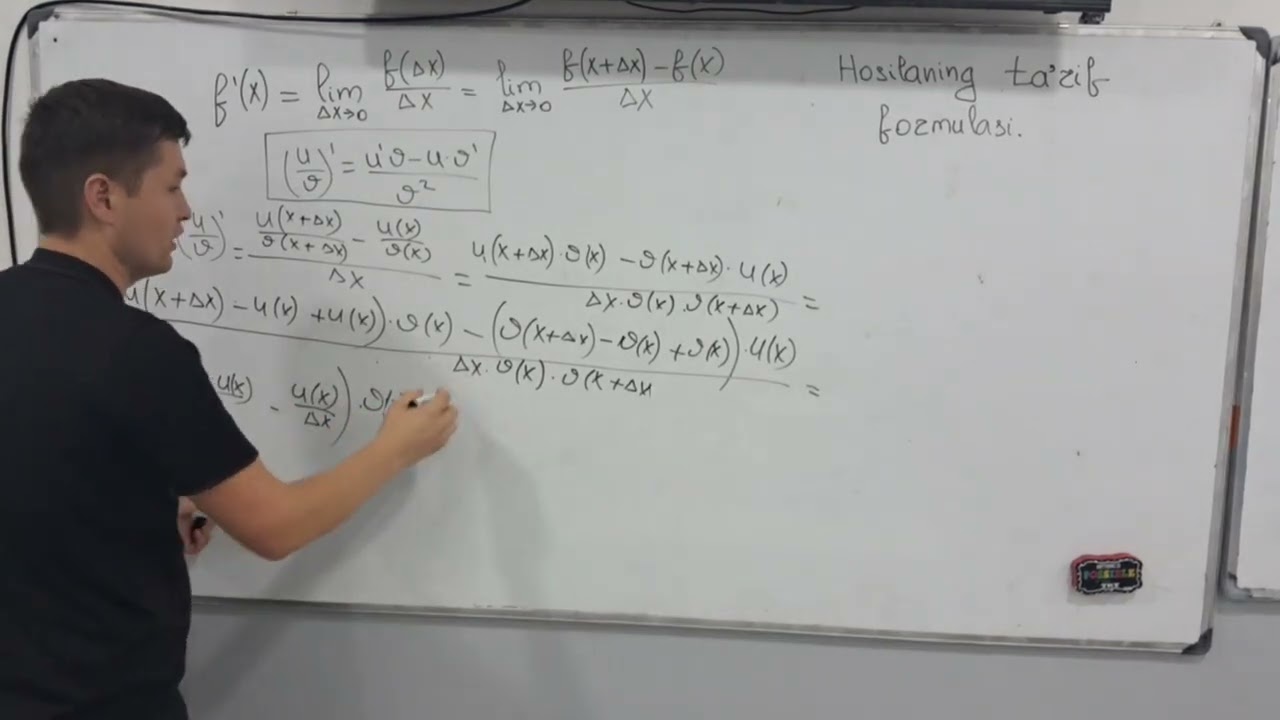 f'(x) = lim Δx→0 f(Δx)/Δx = lim Δx→0 (f(x+Δx) − f(x))/Δx
Hosilaning ta'rif
formulasi.
(u/ϑ)' = (u'ϑ − u·ϑ')/ϑ²
(u/ϑ)' = (u(x+Δx)/ϑ(x+Δx) − u(x)/ϑ(x))/Δx = (u(x+Δx)·ϑ(x) − ϑ(x+Δx)·u(x))/(Δx·ϑ(x)·ϑ(x+Δx)) =
u(x+Δx) − u(x) + u(x))·ϑ(x) − (ϑ(x+Δx) − ϑ(x) + ϑ(x))·u(x) / Δx·ϑ(x)·ϑ(x+Δx =
u(x) − u(x)/Δx)·ϑ(
POSSIBLE